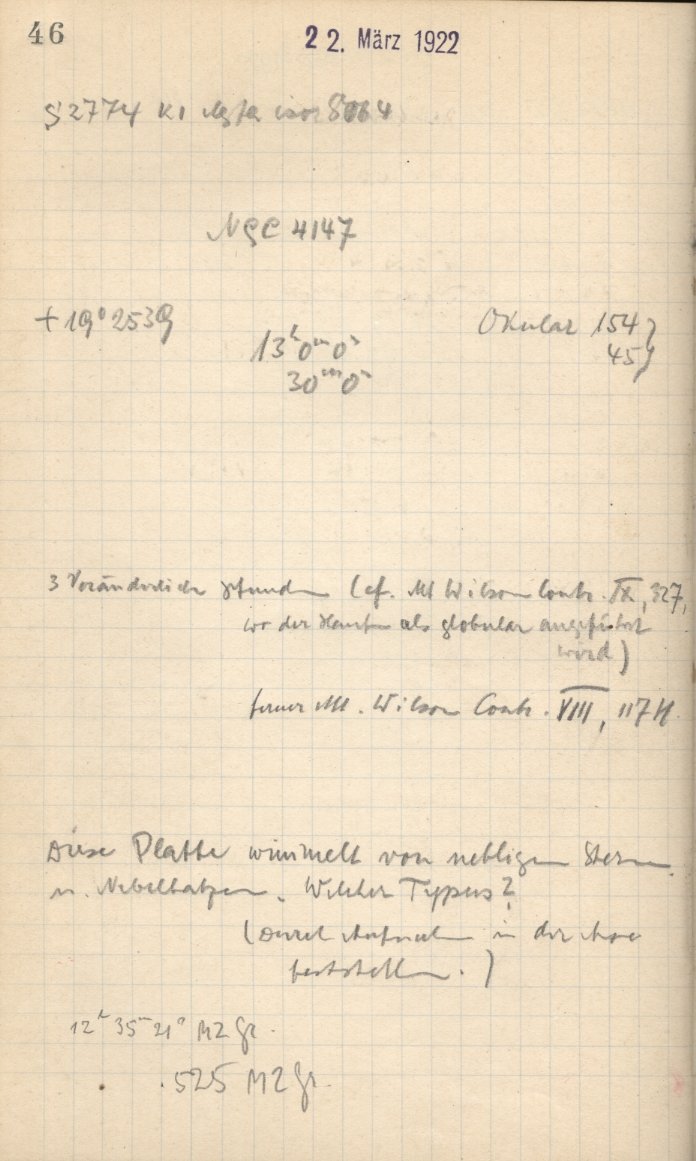 46
22. März 1922
S2774 K1 Agfa isor 8064
NGC 4147
+19° 2539
Okular 154
13h 0m 0s
45
30m 0s
3 Veränderliche (cf. Mt Wilson Contr. IX, 327,
wo der Haufen als globular angeführt
wird)
ferner Mt. Wilson Contr. VIII, 117
Diese Platte wimmelt von nebligen Sternen
u. Welcher Typus?
(Durch Aufnahmen in der
feststellen.)
12h 35m 21s MZ Gr.
.525 MZ Gr.